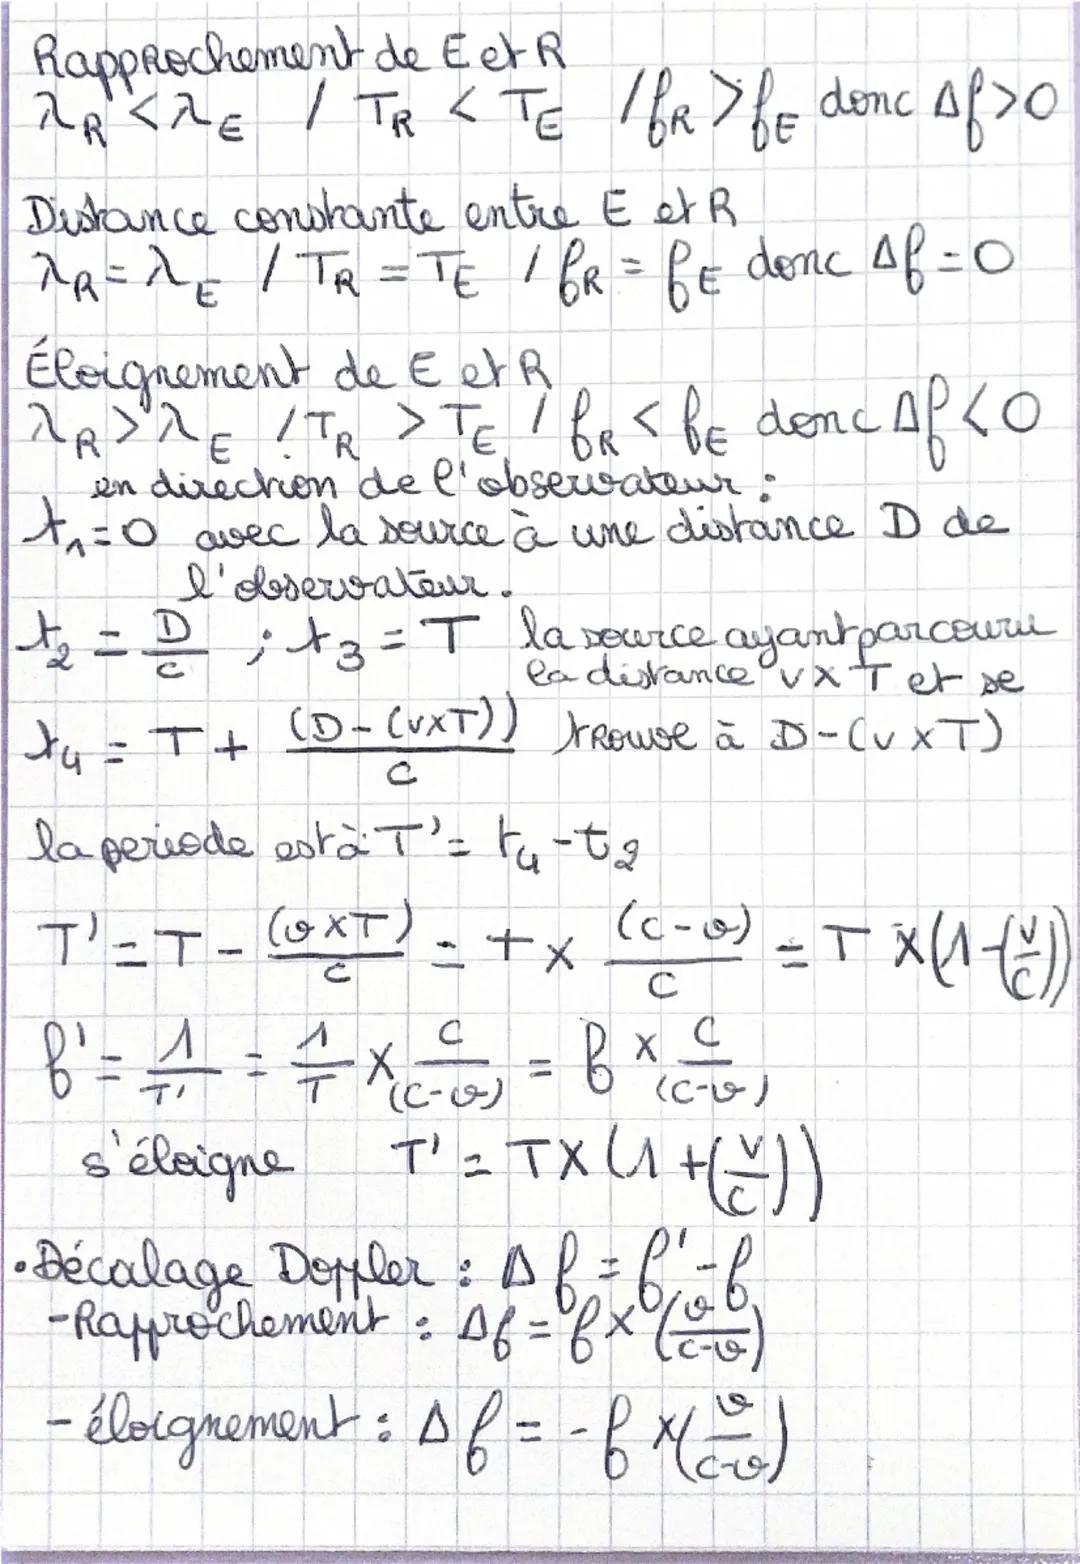 Rapprochement de E et R
λR < λE / TR < TE / fR > fE donc Δf > 0
Distance constante entre E et R
λR = λE / TR = TE / fR = fE donc Δf = 0
Éloignement de E et R
λR > λE / TR > TE / fR < fE donc Δf < 0
en direction de l'observateur :
t₁ = 0 avec la source à une distance D de
l'observateur.
t₂ = D/c ; t₃ = T la source ayant parcouru
la distance v x T et se
t₄ = T + (D - (v x T))/c trouve à D - (v x T)
la periode est à T' = t₄ - t₂
T' = T - (v x T)/c = T x (c - v)/c = T x (1 - (v/c))
f' = 1/T' = 1/T x c/(c - v) = f x c/(c - v)
s'éloigne T' = T x (1 + (v/c))
• Décalage Doppler : Δf = f' - f
- Rapprochement : Δf = f x (v/c-v)
- éloignement : Δf = - f x (v/c-v)